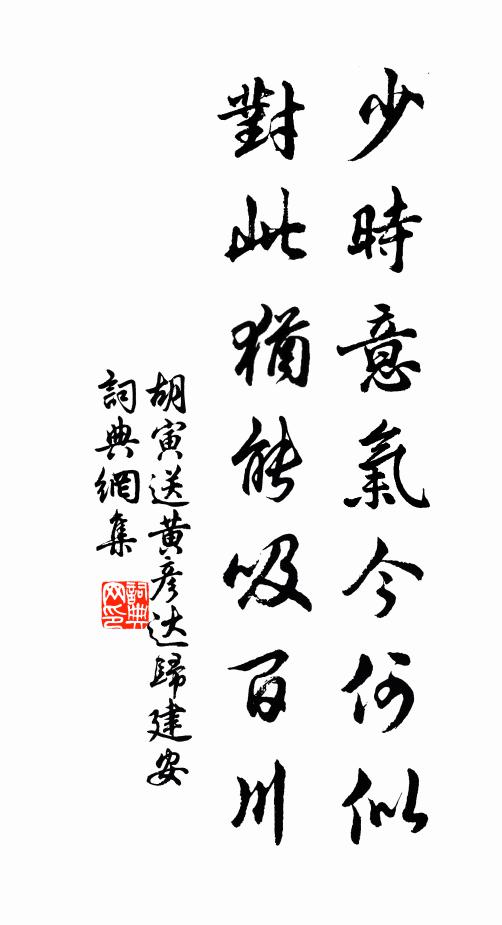 少時意氣今何似
對此猶能吸百川
胡寅送黃彥达歸建安
詞典網集
詞典网印